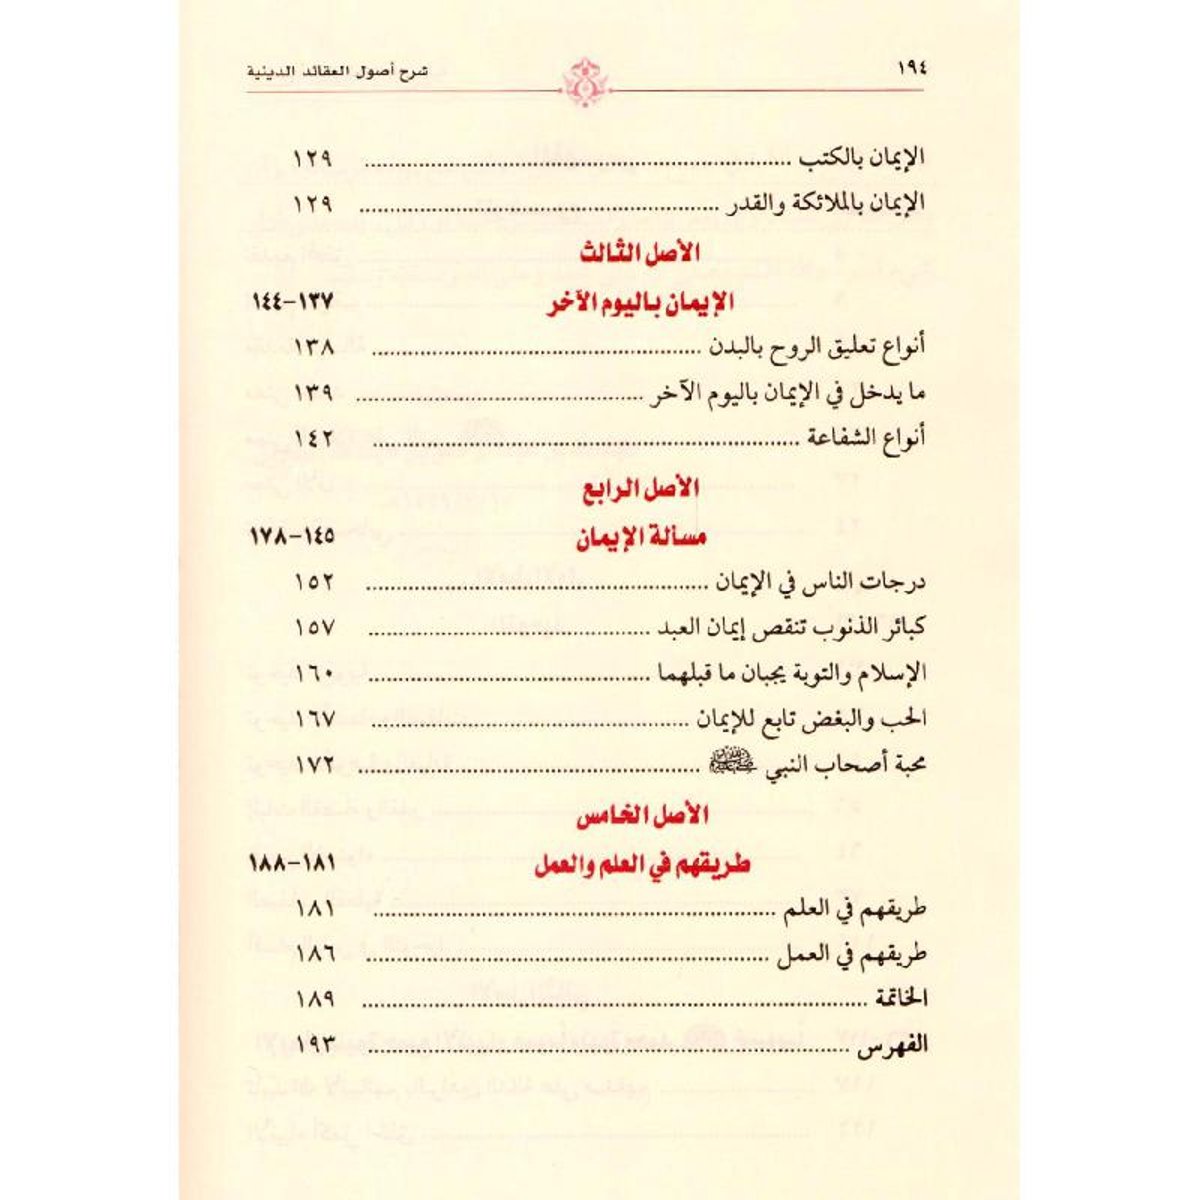 ١٩٤ شرح أصول العقائد الدينية
الإيمان بالكتب ........................ ١٢٩
الإيمان بالملائكة والقدر ........................ ١٢٩
الأصل الثالث
الإيمان باليوم الآخر ١٣٧-١٤٤
أنواع تعليق الروح بالبدن ........................ ١٣٨
ما يدخل في الإيمان باليوم الآخر ........................ ١٣٩
أنواع الشفاعة ........................ ١٤٢
الأصل الرابع
مسألة الإيمان ١٤٥-١٧٨
درجات الناس في الإيمان ........................ ١٥٢
كبائر الذنوب تنقص إيمان العبد ........................ ١٥٧
الإسلام والتوبة يجبان ما قبلهما ........................ ١٦٠
الحب والبغض تابع للإيمان ........................ ١٦٧
محبة أصحاب النبي ﷺ ........................ ١٧٢
الأصل الخامس
طريقهم في العلم والعمل ١٨١-١٨٨
طريقهم في العلم ........................ ١٨١
طريقهم في العمل ........................ ١٨٦
الخاتمة ........................ ١٨٩
الفهرس ........................ ١٩٣